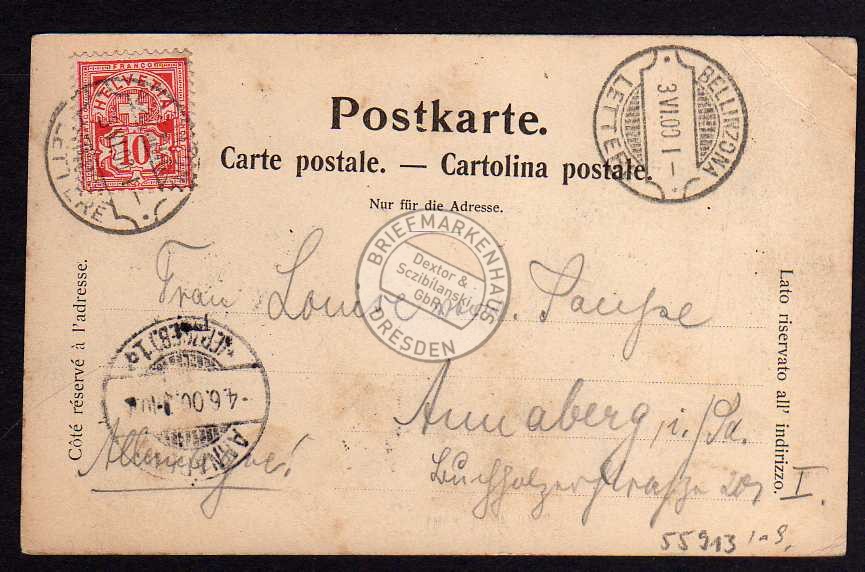 FRANCO
HELVETIA
10
LETTERE
BELLINZONA
3 VI.00 I -
LETTERE
Postkarte.
Carte postale. — Cartolina postale.
Nur für die Adresse.
Côté réservé à l'adresse.
Lato riservato all' indirizzo.
BRIEFMARKENHAUS
Dextor &
Sczibilanski
GbR
DRESDEN
Frau Louise
Annaberg, i./Sa.
Buchholzerstrasse 20, I.
Allemagne!
-4.6.00.
55913